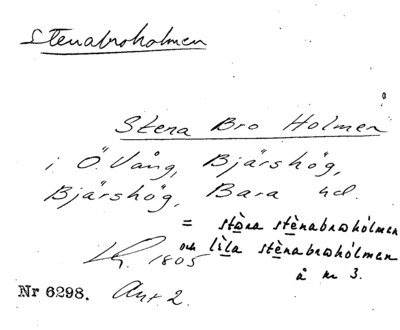 Stenabroholmen
Stena Bro Holmen
i Ö. Vång, Bjärshög,
Bjärshög, Bara hd.
= stɷ̀ra stènabrɷhólmen
och lìla stènabrɷhólmen
å nr 3.
Lr. 1805
Nr 6298. Ant 2.